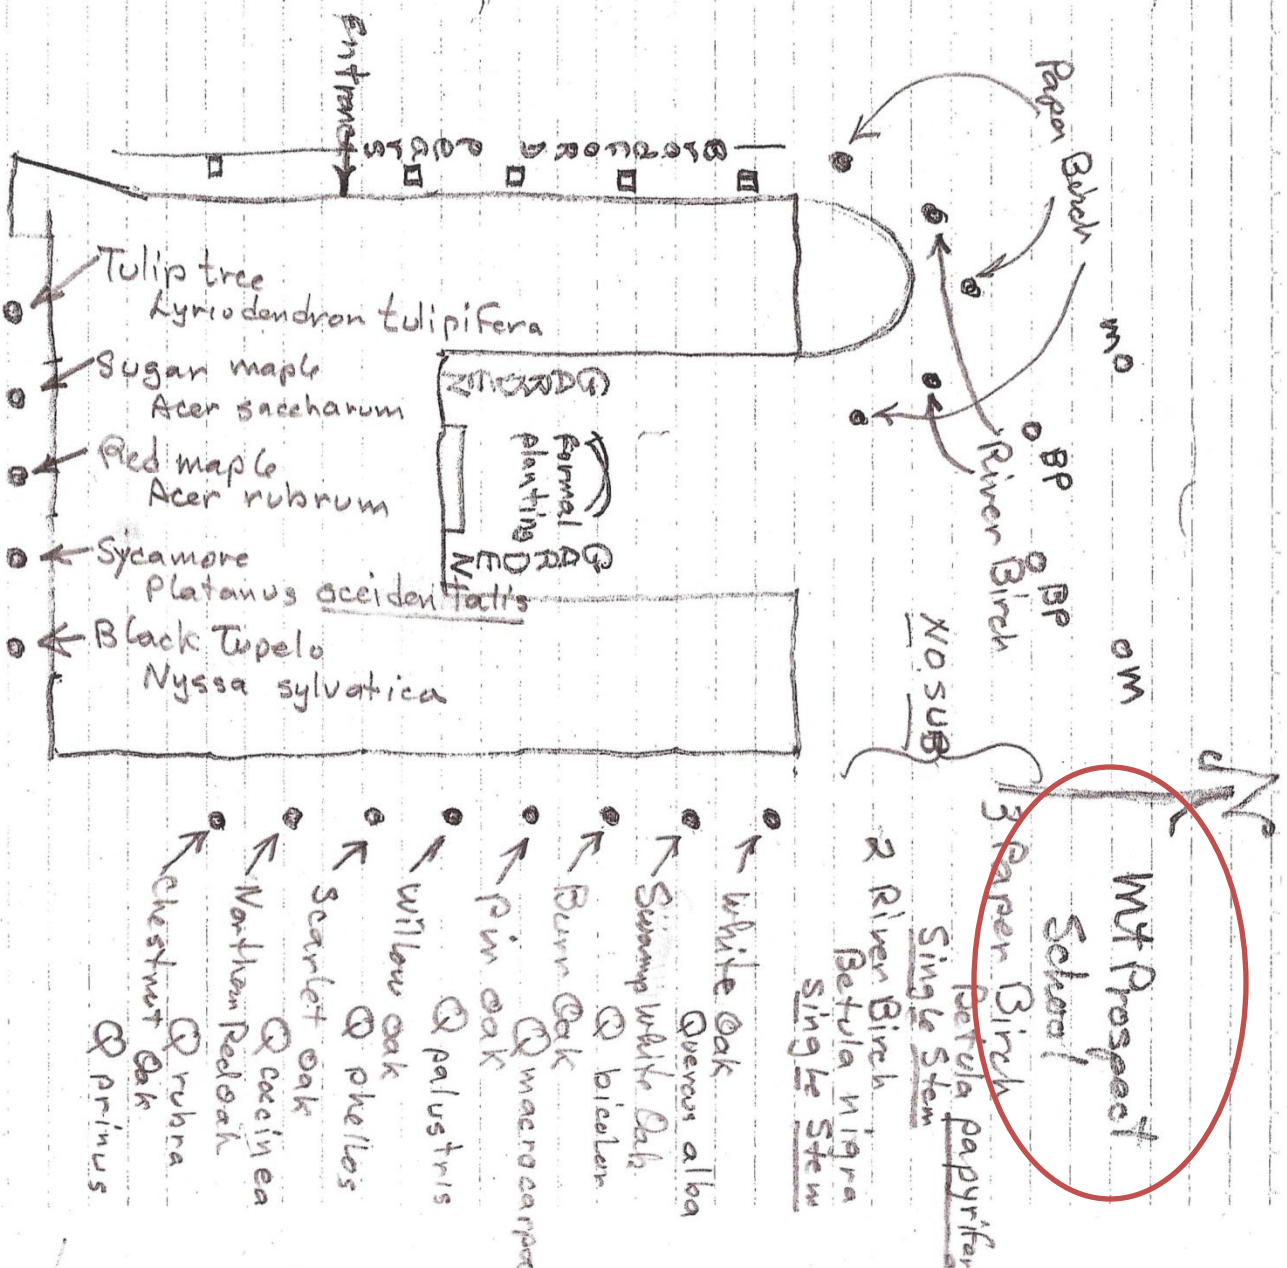 Entrance
Paper Birch
Tulip tree
Lyriodendron tulipifera
Sugar maple
Acer saccharum
Red maple
Acer rubrum
Sycamore
Platanus occidentalis
Black Tupelo
Nyssa sylvatica
GARDEN
Formal
planting
GARDEN
River Birch
M
BP
BP
M
NO SUB
N
Mt Prospect
School
3 Paper Birch
Betula papyrifera
Single Stem
2 River Birch
Betula nigra
Single Stem
White Oak
Quercus alba
Swamp White Oak
Q bicolor
Burr Oak
Q macrocarpa
Pin oak
Q palustris
Willow oak
Q phellos
Scarlet oak
Q coccinea
Northern Red oak
Q rubra
Chestnut Oak
Q prinus